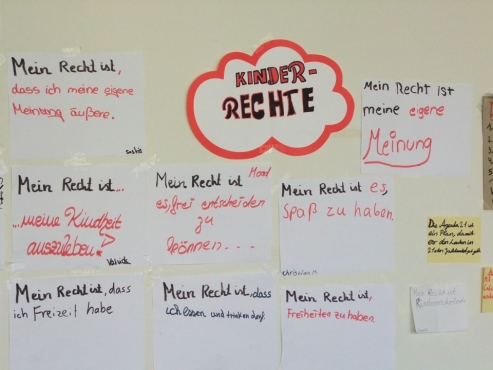 KINDER-
RECHTE
Mein Recht ist,
dass ich meine eigene
Meinung äußere.
Mein Recht ist
meine eigene
Meinung
Mein Recht ist...
...meine Kindheit
auszuleben!
Mein Recht ist
es, frei entscheiden
zu
können...
Mein Recht ist es,
Spaß zu haben.
Die Agenda 21 ist
ein Plan, damit
Mein Recht ist, dass
ich Freizeit habe
Mein Recht ist, dass
ich essen und trinken darf.
Mein Recht ist,
Freiheiten zu haben.
Mein Recht ist